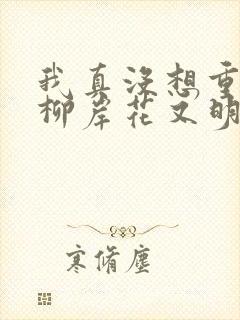 我真没想重
柳岸花又明
寒脩塵